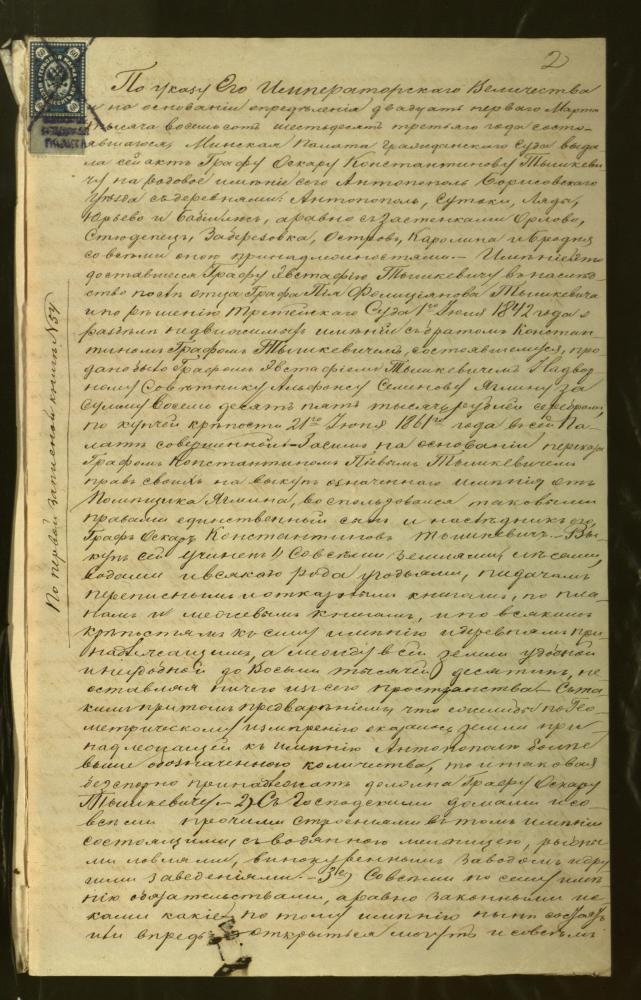 2
По указу Его Императорскаго Величества
и на основаніи опредѣленія двадцать перваго Марта
тысяча восемьсотъ шестьдесятъ третьяго года состо-
явшагося, Минская Палата Гражданскаго Суда выда-
ла сей актъ Графу Оскару Константинову Тышкеви-
чу на родовое имѣніе его Антополь Борисовскаго
Уѣзда съ деревнями: Антополь, Сутоки, Ляды,
Юрьево и, а равно съ застенками Орлово,
Стюденецъ, Заберезовка, Островъ, Каролина и Бродня
со всѣми оною принадлежностями. Имѣніе это
доставшееся Графу Евстафію Тышкевичу въ наслѣд-
ство послѣ отца Графа Пія Фелиціянова Тышкевича
и по рѣшенію Третейскаго Суда 1го Іюня 1842 года о
раздѣлѣ недвижимыхъ имѣній съ братомъ Констан-
тиномъ Графомъ Тышкевичемъ, состоявшемуся, про-
дано было Графомъ Евстафіемъ Тышкевичемъ Надвор-
ному Совѣтнику Альфонсу Семенову Ягмину за
сумму восемьдесятъ пять тысячъ рублей серебромъ,
по купчей крѣпости 21го Іюня 1861го года въ сей Па-
латѣ совершенной. Засимъ на основаніи
Графомъ Константиномъ Піевымъ Тышкевичемъ
правъ своихъ на выкупъ означеннаго имѣнія отъ
Помѣщика Ягмина, воспользовался таковыми
правами единственный сынъ и наслѣдникъ его
Графъ Оскаръ Константиновъ Тышкевичъ. Вы-
купъ сей учиненъ 1) Со всѣми землями, лѣсами,
водами и всякаго рода угодьями, по дачамъ
переписнымъ и отказнымъ книгамъ, по пла-
намъ и межевымъ книгамъ, и по всякимъ
крѣпостямъ къ сему имѣнію и деревнямъ при-
надлежащимъ, а между всей земли удобной
и неудобной до восьми тысячей десятинъ, не
оставляя ничего изъ сего пространства. Съ та-
кимъ притомъ предвареніемъ, что если бы по Гео-
метрическому измѣренію оказалось земли при-
надлежащей къ имѣнію Антополю болѣе
выше обозначеннаго количества, то и таковая
безспорно принадлежать должна Графу Оскару
Тышкевичу. 2) Съ Господскими домами и со
всѣми прочими строеніями въ томъ имѣніи
состоящими, съ водяною мельницею, рыбны-
ми ловлями, винокуреннымъ заводомъ и дру-
гими заведеніями. 3е) Со всѣми по сему имѣ-
нію обязательствами, а равно законными ис-
ками какіе по тому имѣнію нынѣ состоятъ
или впредь открыться могутъ и со всѣмъ
По первой записной книгѣ № 54